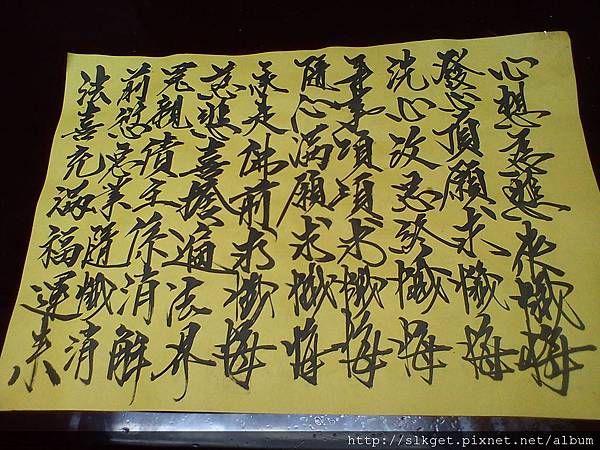 心想慈悲來懺悔
發心頂願求懺悔
洗心改懺悔
事項項求懺悔
隨心滿願求懺悔
佛前求懺悔
慈悲喜捨遍法界
冤親債主係消解
前愆惡業隨懺消
法喜充滿福運來
http://slkget.pixnet.net/album